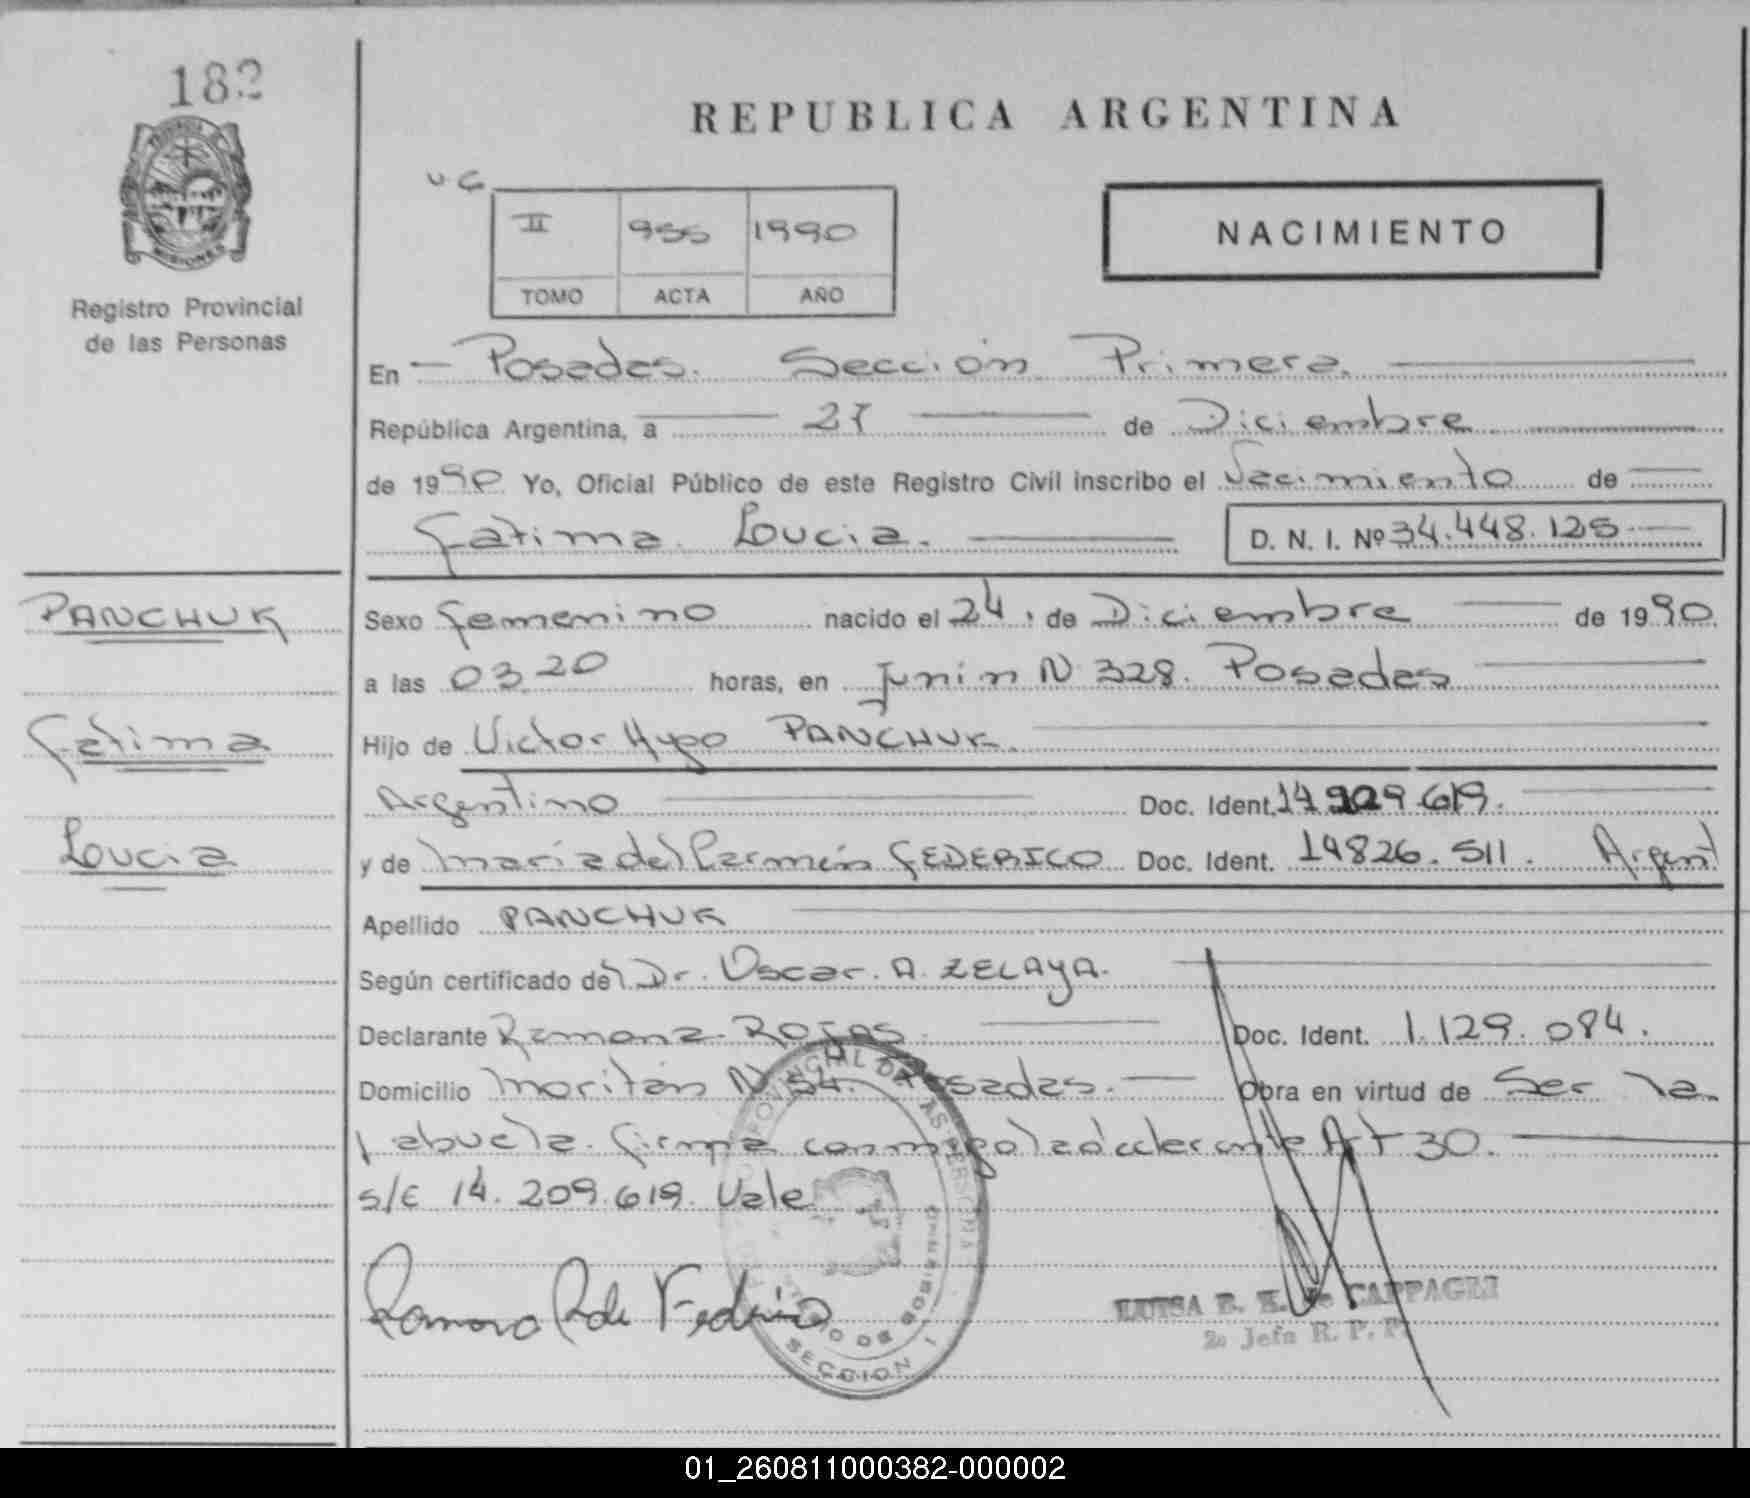 182
REPUBLICA ARGENTINA
MISIONES
Registro Provincial
de las Personas
II 955 1990
TOMO ACTA AÑO
NACIMIENTO
En Posadas. Sección Primera.
República Argentina, a 27 de Diciembre
de 1990 Yo, Oficial Público de este Registro Civil inscribo el Nacimiento de
Fatima Loucia.
D. N. I. Nº 34.448.125
PANCHUK
Fatima
Loucia
Sexo Femenino nacido el 24 de Diciembre de 1990
a las 03 20 horas, en Junin N 328. Posadas
Hijo de Victor Hugo PANCHUK.
Argentino Doc. Ident. 14 209.619.
y de Maria del Carmen FEDERICO Doc. Ident. 14826.511. Argent
Apellido PANCHUK
Según certificado del Dr. Oscar. A. ZELAYA.
Declarante Ramona ROJAS. Doc. Ident. 1.129.084.
Domicilio N 54. Posadas. Obra en virtud de Ser la
abuela. Firma conmigo la declarante Art 30.
s/e 14.209.619. Vale
Ramona R de Federico
SECCION 1
LUISA E. K. de CAPPAGLI
2a Jefa R. P. P.
01_260811000382-000002